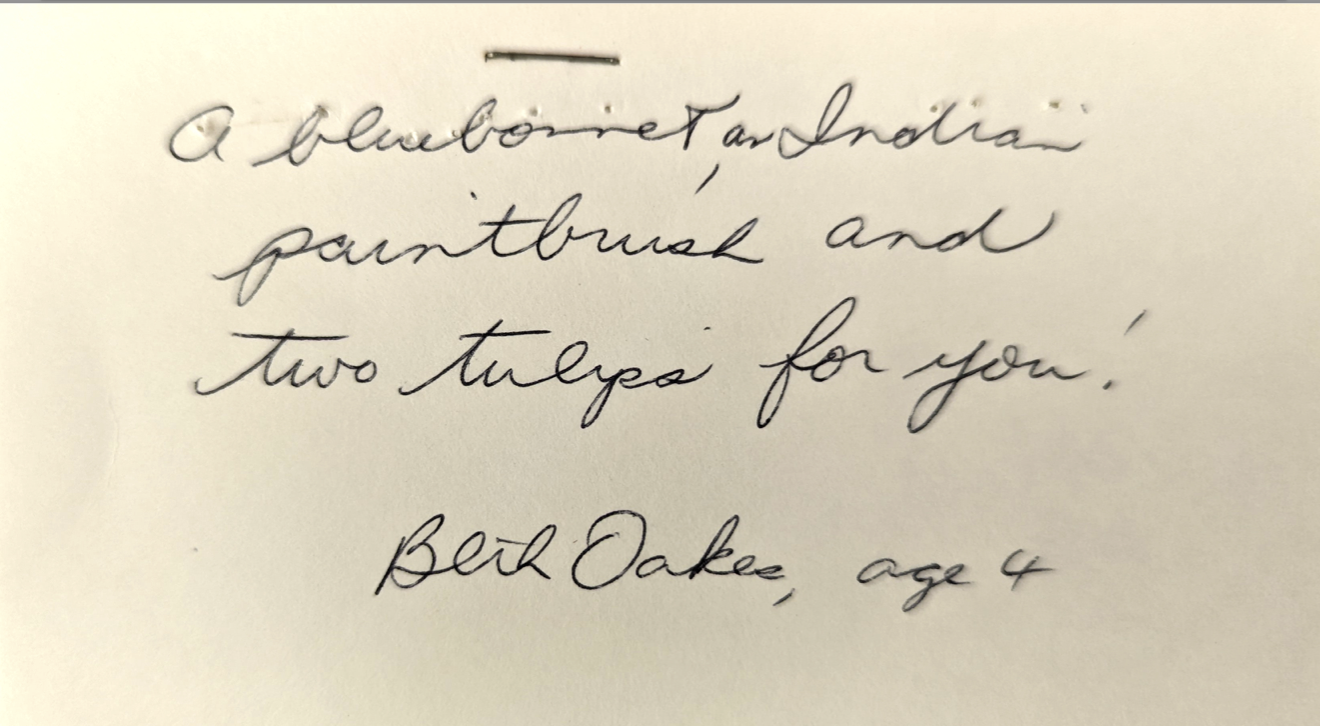 A bluebonnet, an Indian
paintbrush and
two tulips for you!
Beth Oakes, age 4